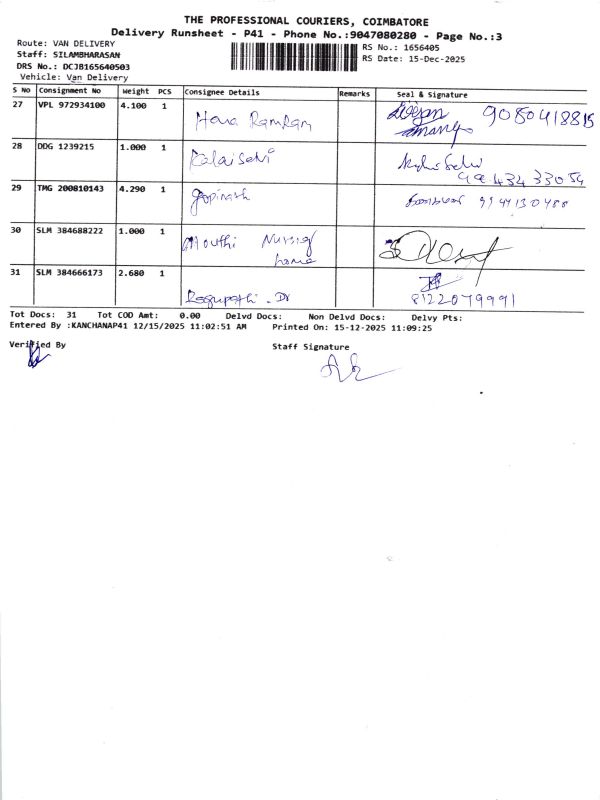 THE PROFESSIONAL COURIERS, COIMBATORE
Delivery Runsheet - P41 - Phone No.:9047080280 - Page No.:3
Route: VAN DELIVERY
Staff: SILAMBHARASAN
DRS No.: DCJB165640503
Vehicle: Van Delivery
RS No.: 1656405
RS Date: 15-Dec-2025
S No Consignment No Weight PCS Consignee Details Remarks Seal & Signature
27 VPL 972934100 4.100 1 Hava RamRam 9080418815
28 DDG 1239215 1.000 1 Kalaiselvi
29 TMG 200810143 4.290 1 gopinath
30 SLM 384688222 1.000 1 Mouthi Nursing home
31 SLM 384666173 2.680 1 Ragupathi . Dr 8122079991
Tot Docs: 31 Tot COD Amt: 0.00 Delvd Docs: Non Delvd Docs: Delvy Pts:
Entered By :KANCHANAP41 12/15/2025 11:02:51 AM Printed On: 15-12-2025 11:09:25
Verified By
Staff Signature